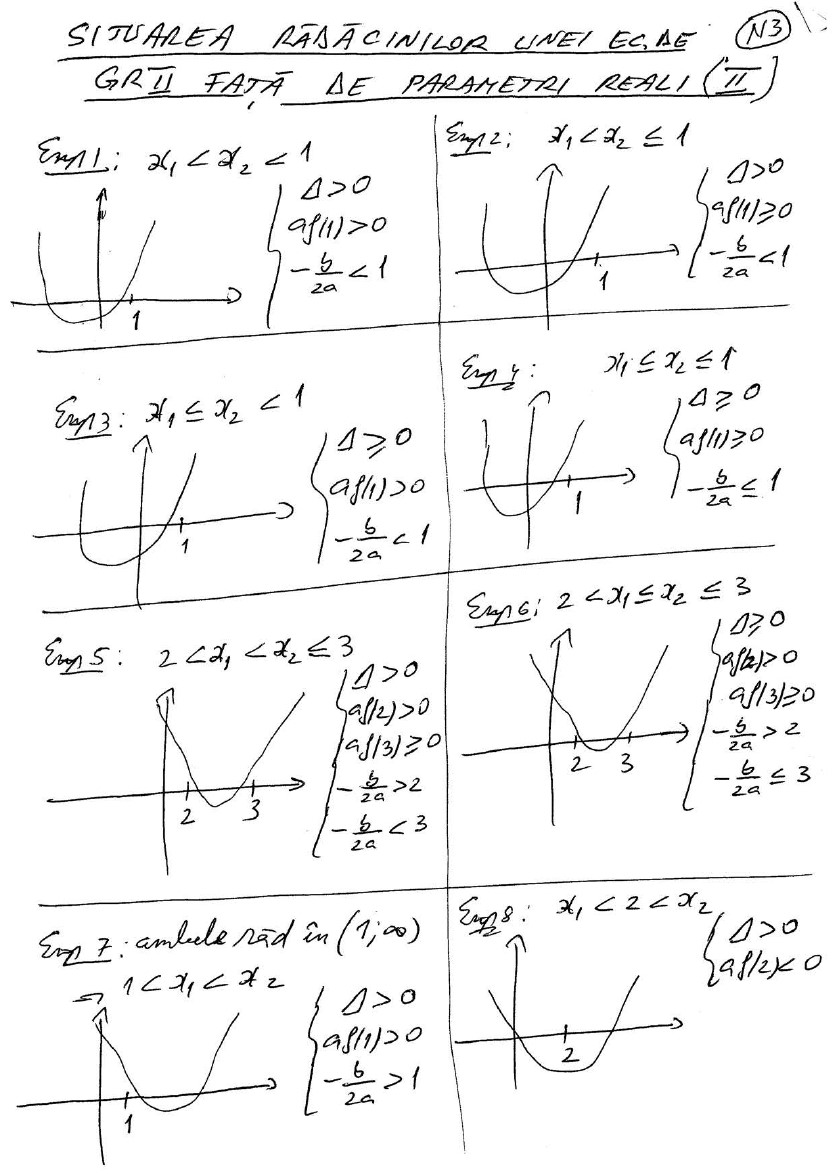 SITUAREA RĂDĂCINILOR UNEI EC. DE
N3
GR II FAȚĂ DE PARAMETRI REALI (II)
Exp 1: x₁ < x₂ < 1
Δ > 0
af(1) > 0
-b/2a < 1
1
Exp 2: x₁ < x₂ ≤ 1
Δ > 0
af(1) ≥ 0
-b/2a < 1
1
Exp 3: x₁ ≤ x₂ < 1
Δ ≥ 0
af(1) > 0
-b/2a < 1
1
Exp 4: x₁ ≤ x₂ ≤ 1
Δ ≥ 0
af(1) ≥ 0
-b/2a ≤ 1
1
Exp 5: 2 < x₁ < x₂ ≤ 3
Δ > 0
af(2) > 0
af(3) ≥ 0
-b/2a > 2
-b/2a < 3
2 3
Exp 6: 2 < x₁ ≤ x₂ ≤ 3
Δ ≥ 0
af(2) > 0
af(3) ≥ 0
-b/2a > 2
-b/2a ≤ 3
2 3
Exp 7: ambele răd în (1; ∞)
⇒ 1 < x₁ < x₂
Δ > 0
af(1) > 0
-b/2a > 1
1
Exp 8: x₁ < 2 < x₂
Δ > 0
af(2) < 0
2